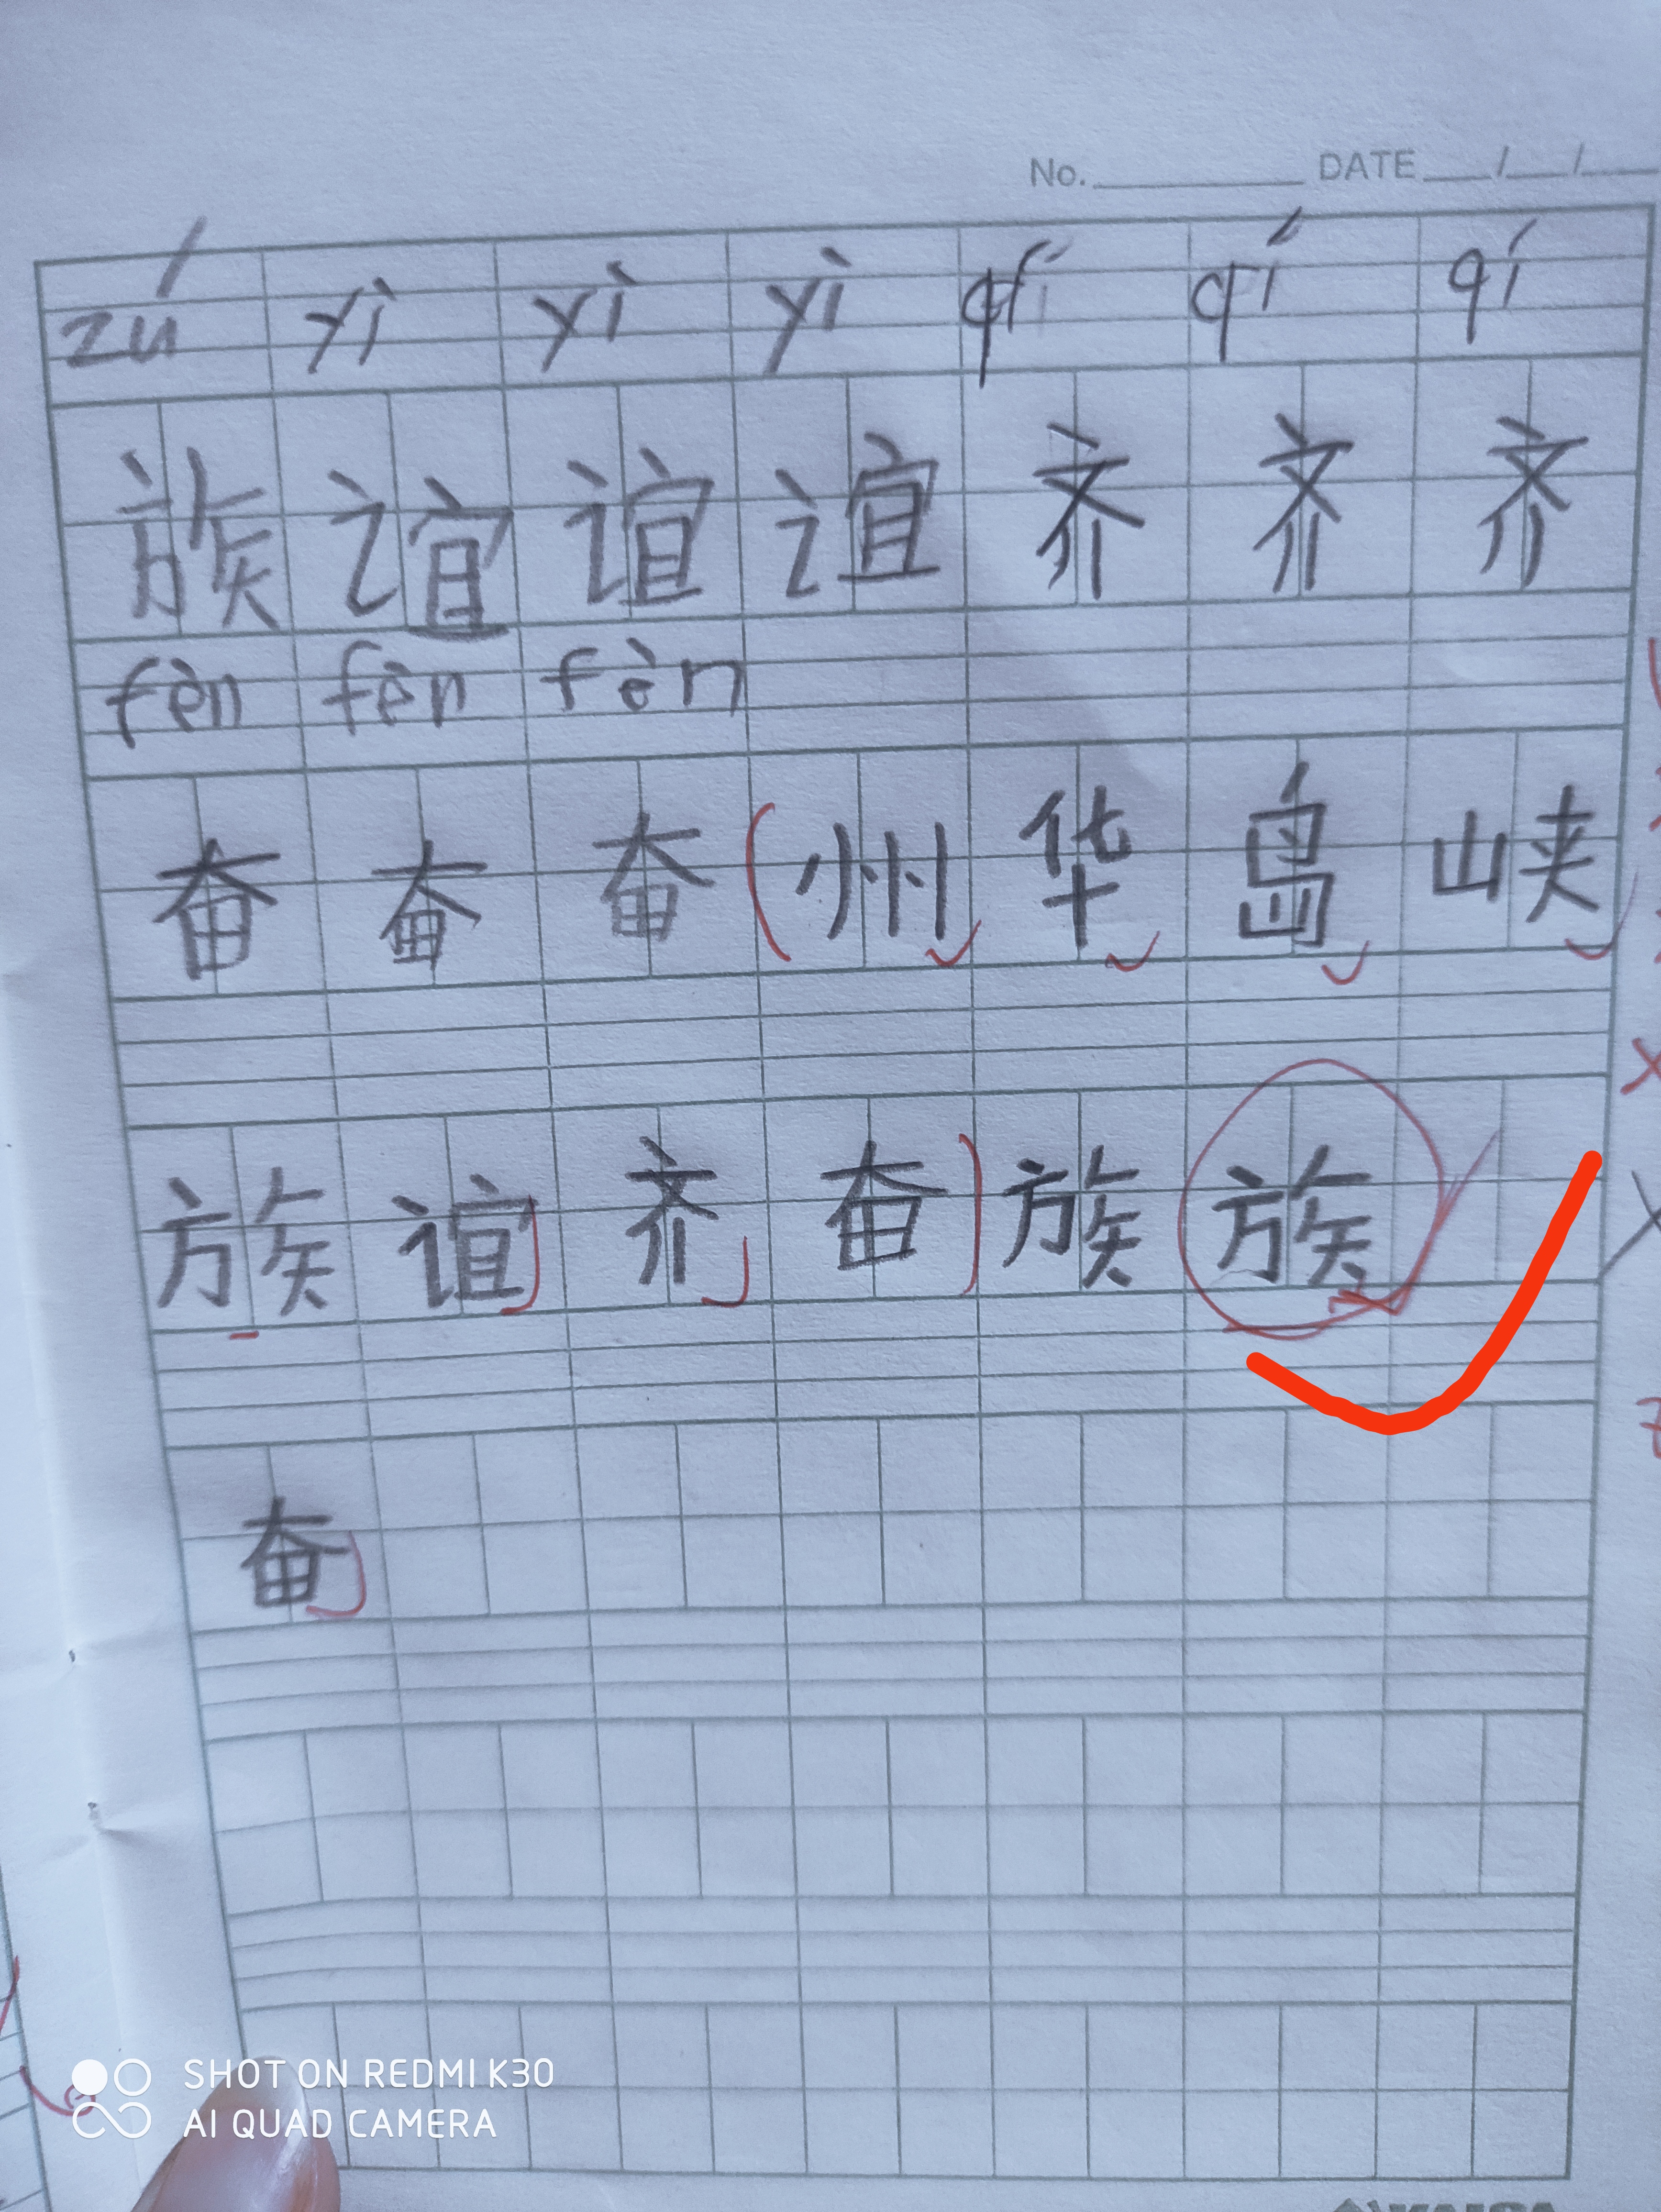 No. DATE / /
zú yì yì yì qí qí qí
族 谊 谊 谊 齐 齐 齐
fèn fèn fèn
奋 奋 奋 ( 州 华 岛 峡
族 谊 齐 奋 ) 族 族
奋
SHOT ON REDMI K30
AI QUAD CAMERA